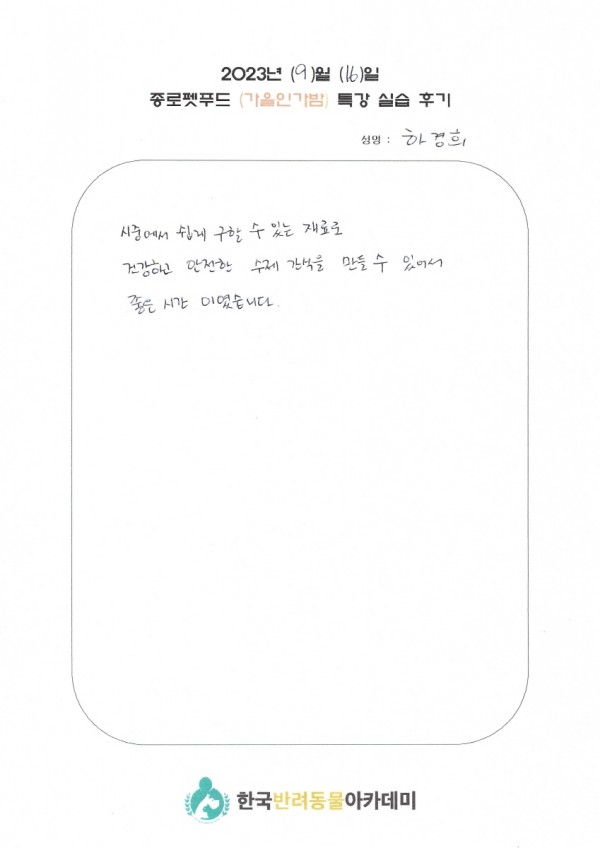 2023년 (9)월 (16)일
종로펫푸드 (가을인가밤) 특강 실습 후기
성명 : 하경희
시중에서 쉽게 구할 수 있는 재료로
건강하고 안전한 수제 간식을 만들 수 있어서
좋은 시간 이였습니다.
한국반려동물아카데미